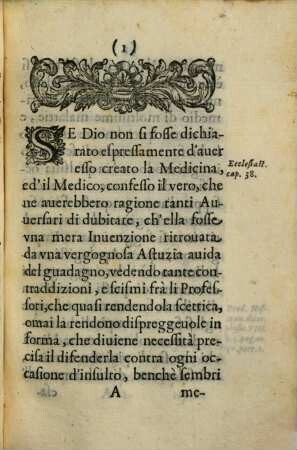 (1)
SE Dio non si fosse dichia-
rato espressamente d'auer
esso creato la Medicina,
Ecclesiast.
cap. 38.
ed'il Medico, confesso il vero, che
ne auerebbero ragione tanti Au-
uersari di dubitare, ch'ella fosse
vna mera Inuenzione ritrouata
da vna vergognosa Astuzia auida
del guadagno, vedendo tante con-
traddizioni, e scismi frà li Profes-
sori, che quasi rendendola scettica,
omai la rendono dispreggeuole in
forma, che diuiene necessità pre-
cisa il difenderla contra ogni oc-
casione d'insulto, benchè sembri
A
me-